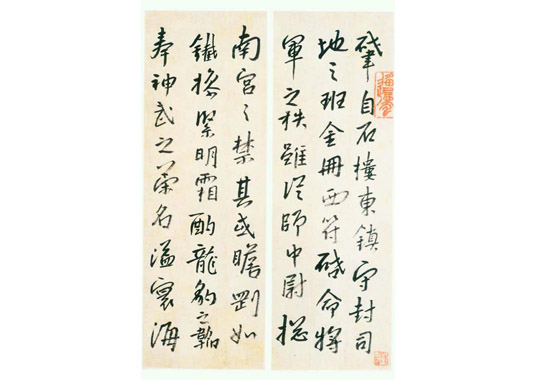 肇自石樓東鎮守封司
地之班金冊西符啓命將
軍之秩雖從師中尉摠
南宮之禁其或膽剛如
鐵操明霜酌龍豹之韜
奉神武之名溢寰海